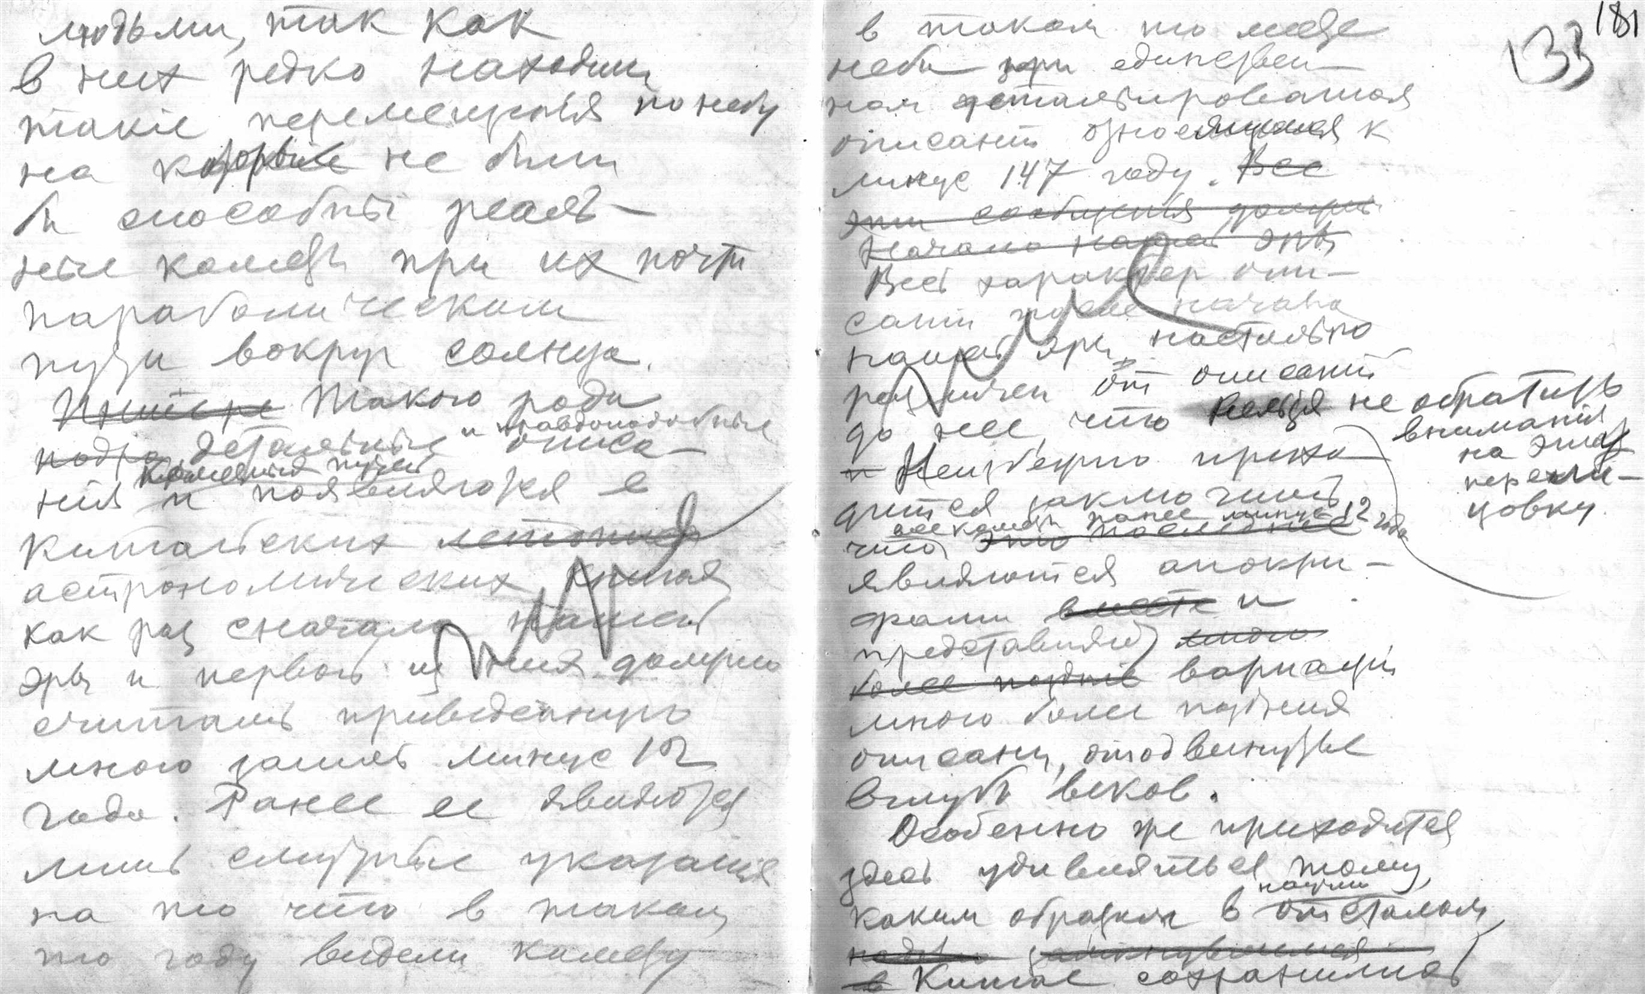 людьми, так как
в них редко находим
такие перемещения по небу
на которые не были
бы способны реаль-
ные кометы при их почти
параболическом
пути вокруг солнца.
Такого рода
детальные и правдоподобные описа-
ния кометных путей
и появляются в
китайских летопис
астрономических книгах
как раз с начала нашей
эры и первой из них должно
считать приведенную
много
года. Ранее ее являются
лишь смутные указания
на то что в таком
то году видели комету
181
133
в таком то месте
неба при единствен-
ном детальированном
описании относящимся к
минус 147 году. Все
эти сообщения
начала нашей эры
Весь характер опи-
саний после начала
нашей эры настолько
различен от описаний
до нее, что нельзя не обратить
внимания
на эту
перели-
цовку
и Неизбежно прихо-
дится заключить
что все кометы ранее минус 12 года
это последнее
являются апокри-
фами вместе и
представляют
более поздние вариации
много более поздния
описания, отодвинутые
вглубь веков.
Особенно же приходится
здесь удивляться тому,
каким образом в научно отсталом
в Китае сохранились